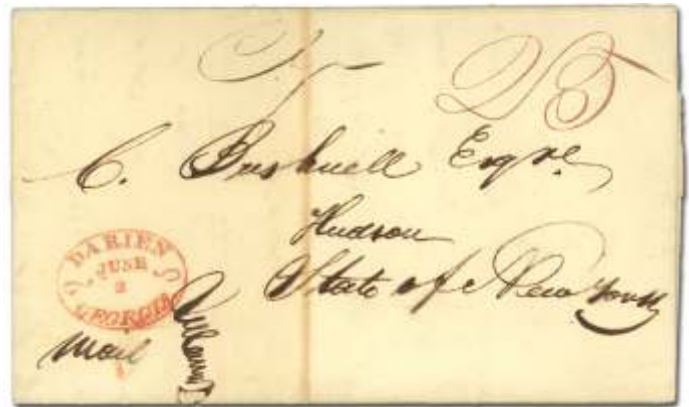 25
C. Bushnell Esqre
Hudson
State of New York
DARIEN
JUNE
2
GEORGIA
Mail